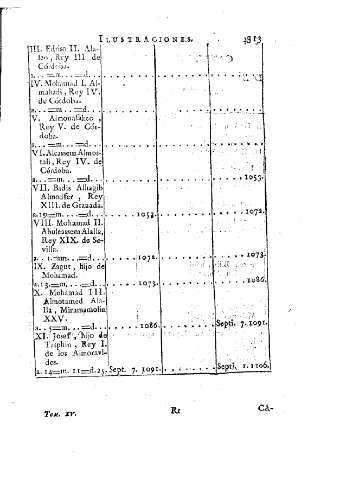 ILUSTRACIONES. 313
III. Edriso II. Ala-
lzo, Rey III de
Córdoba.
a. . .=m. . .=d. . . . . . . . . . . . . . . . . .
IV. Mohamad I. Al-
mahadi, Rey IV.
de Córdoba.
a. . .=m. . .=d. . . . . . . . . . . . . . . . . .
V. Almonafükzo,
Rey V. de Cór-
doba.
a. . .=m. . .=d. . . . . . . . . . . . . . . . . .
VI. Alcassem Almos-
tali, Rey IV. de
Córdoba.
a. . .=m. . .=d. . . . . . . . . . . . . . . . . . 1053.
VII. Badis Alhagib
Almodfer, Rey
XIII. de Granada.
a. 19=m. . .=d. . . . . . . 1053. . . . . . . . . 1072.
VIII. Mohamad II.
Abulcassem Alalla,
Rey XIX. de Se-
villa.
a. . 1.=m. . .=d. . . . . . . 1072. . . . . . . . . 1073.
IX. Zagut, hijo de
Mohamad.
a. 13.=m. . .=d. . . . . . . 1073. . . . . . . . . 1086.
X. Mohamad III.
Almotamed Ala-
lla, Miramamolin
XXV.
a. . 5=m. . .=d. . . . . . . 1086. . . . . . Septi. 7. 1091.
XI. Josef, hijo de
Tesphin, Rey I.
de los Almoravi-
des.
a. 14=m. 11=d. 25. Sept. 7. 1091. . . . . . . Septi. 1. 1106.
Tom. XV. Rr CA-